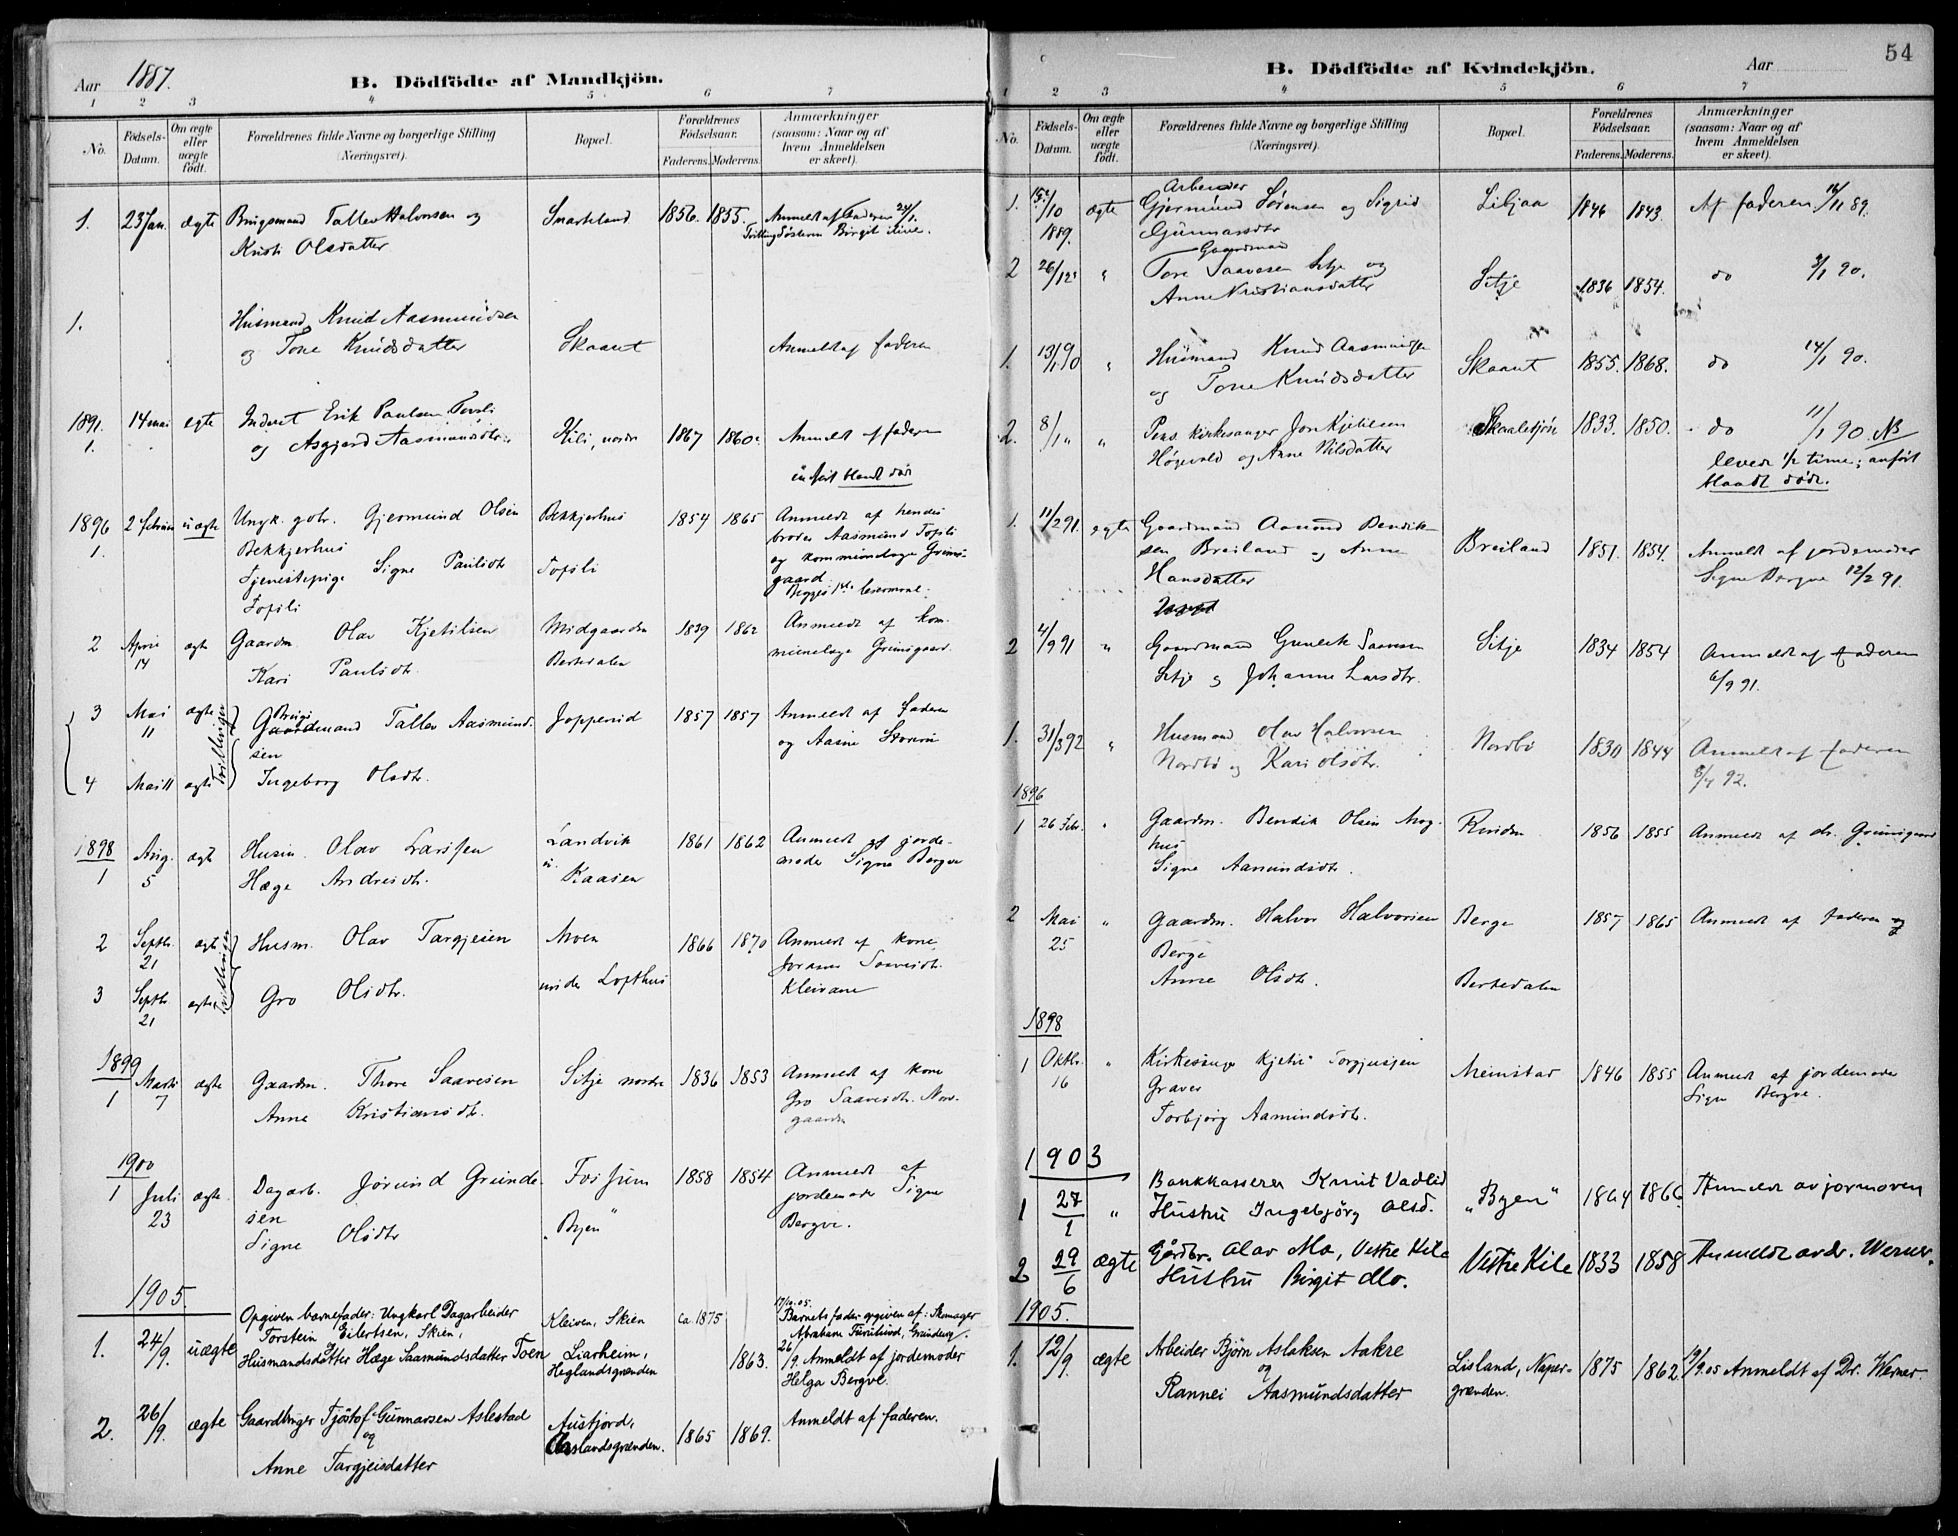 Aar 1887.
B. Dödfödte af Mandkjön.
1 2 3 4 5 6 7
No.
Födsels-Datum.
Om ægte eller uægte födt.
Forældrenes fulde Navne og borgerlige Stilling (Næringsvei).
Bopæl.
Forældrenes Födselsaar.
Faderens. Moderens.
Anmærkninger (saasom: Naar og af hvem Anmeldelsen er skeet).
1. 23 Jan. ægte Brugsmand Tallev Halvorsen og 1856. 1855. Anmeldt af Faderen 24/1.
Tvillingsøsteren Birgit
Kristi Olsdatter
1. Husmand Knud Aasmundsen
og Tone Knudsdatter Skaant Anmeldt af faderen
1891. 14 mai egte Inderst Erik Paulsen
1. og Asgjerd Aasmundsdtr. Kili, nordre 1867 1860. Anmeldt af faderen
blandt døde
1896 2 uægte Ungk. gbr. Gjermund Olsen Bekkjerhus 1854 1865 Anmeldt af hendes
1. Bekkjerhus broder Aasmund Tofsli
Tjenestepige Signe Paulsdtr Tofsli og kommunelæge Grims-
Tofsli gaard.
2 April 14 ægte Gaardm. Olav Kjetilsen Midgaarden 1839 1862 Anmeldt af kom-
Kari Paulsdtr. Bertedalen munelæge Grimsgaard.
3 Mai 11 ægte Brugsmand Tallev Aasmund- Jopperud 1857 1857 Anmeldt af faderen
sen og Aasne
4 Mai 11 ægte Ingeborg Olsdtr.
Tvillinger
1898 Aug. ægte Husm. Olav Larssen Landvik 1861 1862 Anmeldt af jorde-
1 5 Hæge Andresdtr. u. Kaasen moder Signe Bergve
2 Septbr. 21 ægte Husm. Olav Targjesen Moen 1866 1870 Anmeldt af kone
Saavesdtr.
3 Septbr. 21 ægte Gro Olsdtr. under Lofthus Kleivane
Tvillinger
1899 Marts ægte Gaardm. Thore Saavesen Sitje nordre 1836 1853 Anmeldt af kone
1 7 Anne Kristiansdtr. Gro Saavesdtr. Nor-
gaarden
1900
1 Juli ægte. Dagarb. Jørund Grunde- Fossum 1858 1854 Anmeldt af
23 sen jordemoder Signe
Signe Olsdtr „Byen" Bergve.
1905.
Opgiven barnefader: Ungkarl Dagarbeider Kleiven, Skien ca 1875 17/10.05.
Torstein Eilertsen, Skien, Barnets fader opgiven af: Skomager
Abraham Furulund, Grundeng.
1. 24/9. uægte Husmandsdatter Hæge Saamundsdatter Toen Liarheim, 1863. 26/9. Anmeldt af jordemoder
Heglandsgrænden Helga Bergve.
2. 26/9. ægte Gaardbruger Tjöstof Gunnarsen Aslestad Austjord, 1865 1869. Anmeldt af faderen.
og Aaslandsgrænden.
Anne Targjeisdatter
54
B. Dödfödte af Kvindekjön. Aar
1 2 3 4 5 6 7
No.
Födsels-Datum.
Om ægte eller uægte födt.
Forældrenes fulde Navne og borgerlige Stilling (Næringsvei).
Bopæl.
Forældrenes Födselsaar.
Faderens. Moderens.
Anmærkninger (saasom: Naar og af hvem Anmeldelsen er skeet).
Arbeider
1. /10 1889. ægte Gjermund Sörensen og Sigrid Liljaa 1846 1843. Af faderen /11 89.
Gunnarsdtr
Gaardmand
2 26/12 " Tore Saavesen Sitje og Sitje 1836 1854. do 3/1 90.
Anne Kristiansdatter
1. 13/1 90 " Husmand Knud Aasmundsen Skaant 1855. 1868. do 14/1 90.
og Tone Knudsdatter
2. 8/1 " " Pens. kirkesanger Jon Kjetilsen 1833. 1850. do 11/1 90. NB
Høgevold og Anne Nilsdatter levede 1/2 time; anført
blandt døde.
1. 11/2 91. egte Gaardmand Aamund Bendik- Breiland 1851. 1854. Anmeldt af jordemoder
sen Breiland og Anne Signe Bergve 12/2 91.
Hansdatter
2 4/9 91 " Gaardmand Gunleik Saavesen Sitje 1834 1854 Anmeldt af faderen
Sitje og Johanne Larsdtr. 6/9 91.
1. 31/3 92 " Husmand Olav Halvorsen Nordbø 1830 1844 Anmeldt af faderen
Nordbø og Kari Olsdtr. 8/4 92.
1896
1 26 Febr. " Gaardm. Bendik Olsen Mog- 1856 1855 Anmeldt af dr. Grimsgaard
hus
Signe Aamundsdtr.
2 Mai 25 " Gaardm. Halvor Halvorsen Berge 1857 1865 Anmeldt af faderen
Berge
Anne Olsdtr. Bertedalen
1898
1 Oktbr. 16 " Kirkesanger Kjetil Torgjussen Meinstad 1846 1855 Anmeldt af jordemoder
Graver Signe Bergve.
Torbjørg Aamundsdtr.
1903
1 27/1 " Bankkasserer Knut Vadlid „Byen" 1864 1866. Anmeldt av jormoren
Hustru Ingebjörg Olsd.
2 29/6 ægte Gårdbr. Olav Mo, Vestre Kile Vestre Kile 1833 1858 Anmeldt av dr. Werner.
Hustru Birgit Mo.
1905.
1. 12/9. ægte Arbeider Björn Aslaksen Aakre Lisland, Naper- 1875 1862 /9.05 Anmeldt af Dr. Werner
og grænden.
Rannei Aasmundsdatter